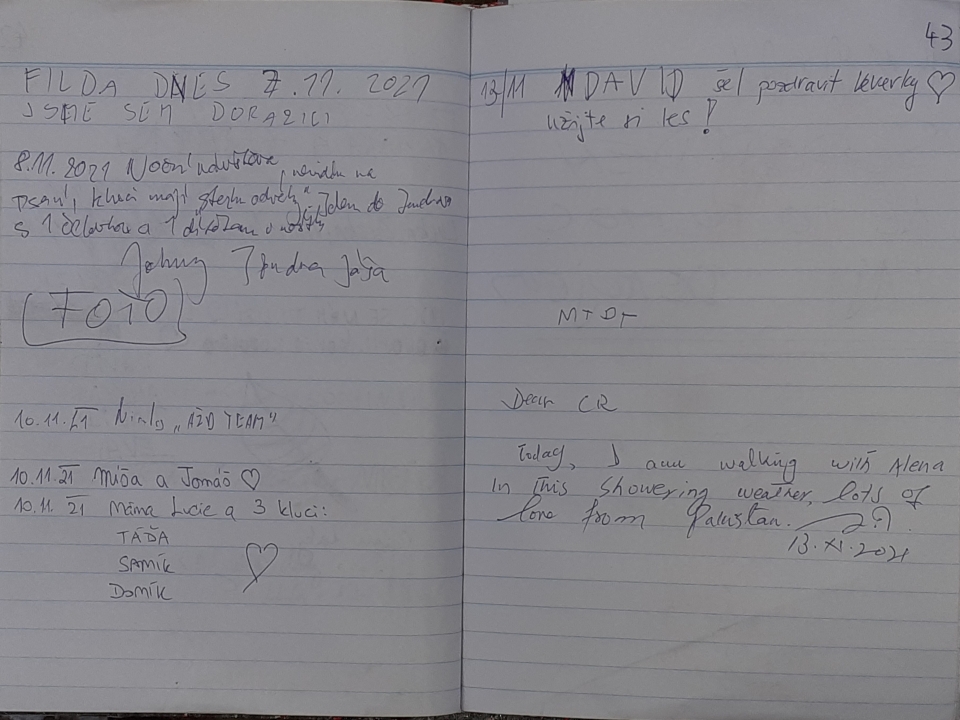 FILDA DNES 7.11.2021
JSME SEM DORAZILI
8.11.2021 Noční návštěva, nevidim na
psaní, kluci mají Jdem do
s 1 čelovkou a 1
Johny Jindra Jája
FOTO
10.11.21 „AZD TEAM“
10.11.21 Míša a Tomáš ♡
10.11.21 Máma Lucie a 3 kluci:
TÁĎA
SAMÍK
DOMÍK
43
13/11 DAVID šel pozdravit veverky ♡
Užijte si les!
MTDT
Dear CR
Today, I am walking with Alena
In This showering weather, lots of
love from Pakistan.
13.XI.2021